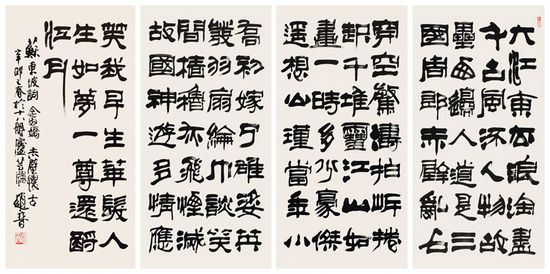 大江東去浪淘盡
千古風流人物故
壘西邊人道是三
國周郎赤壁亂石
穿空驚濤拍岸捲
起千堆雪江山如
畫一時多少豪傑
遙想公瑾當年小
喬初嫁了雄姿英
發羽扇綸巾談笑
間檣櫓灰飛煙滅
故國神遊多情應
笑我早生華髮人
生如夢一尊還酹
江月
蘇東坡詞念奴嬌赤壁懷古
辛卯之春於十八